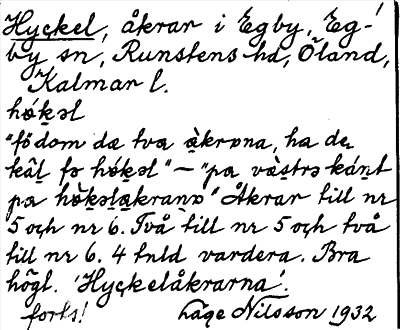 Hyckel, åkrar i Egby, Eg-
by sn, Runstens hd, Öland,
Kalmar l.
hø̀ḵəl
"fødom dæ tvɑ àkrɒna, ha de
kâḻ fɘ hǿḵəl" — "pɑ væ̀strə kánt
pɑ hø̀ḵəlạkranɒ" Åkrar till nr
5 och nr 6. Två till nr 5 och två
till nr 6. 4 tnld vardera. Bra
högl. 'Hyckelåkrarna'.
forts! Håge Nilsson 1932